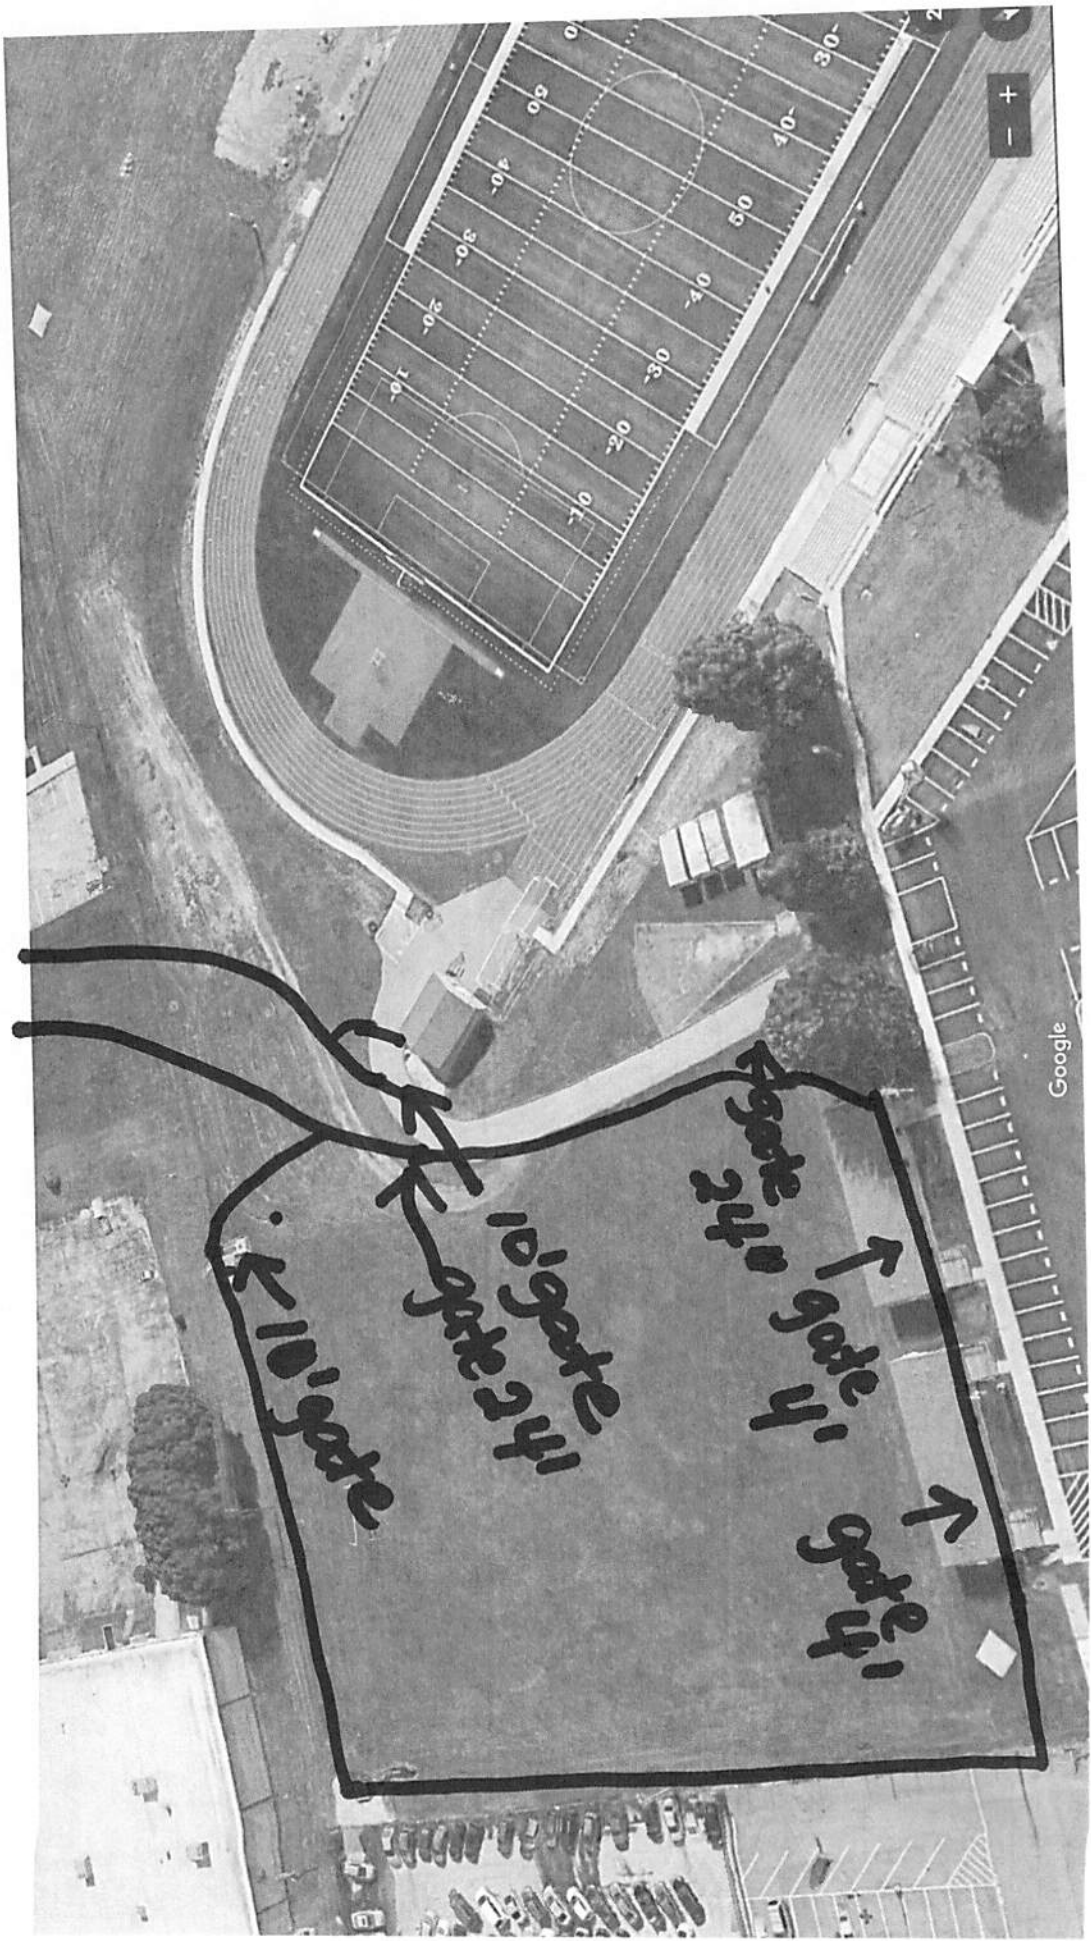 50
-40
-30
-20
-10
30-
40-
50
-40
-30
-20
-10
+
-
Google
gate
24"
gate
4'
gate
4'
10' gate
gate 24'
10' gate